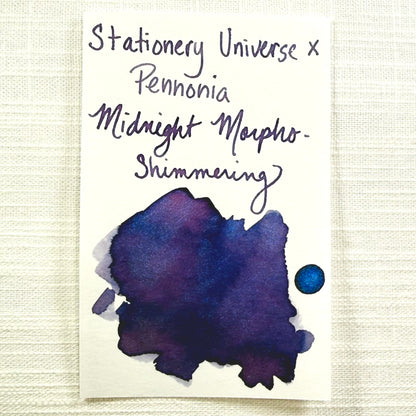 Stationery Universe x
Pennonia
Midnight Morpho-
Shimmering